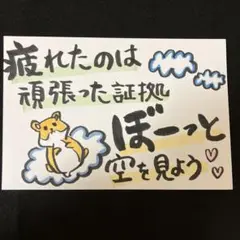 疲れたのは
頑張った証拠
ぼーっと
空を見よう